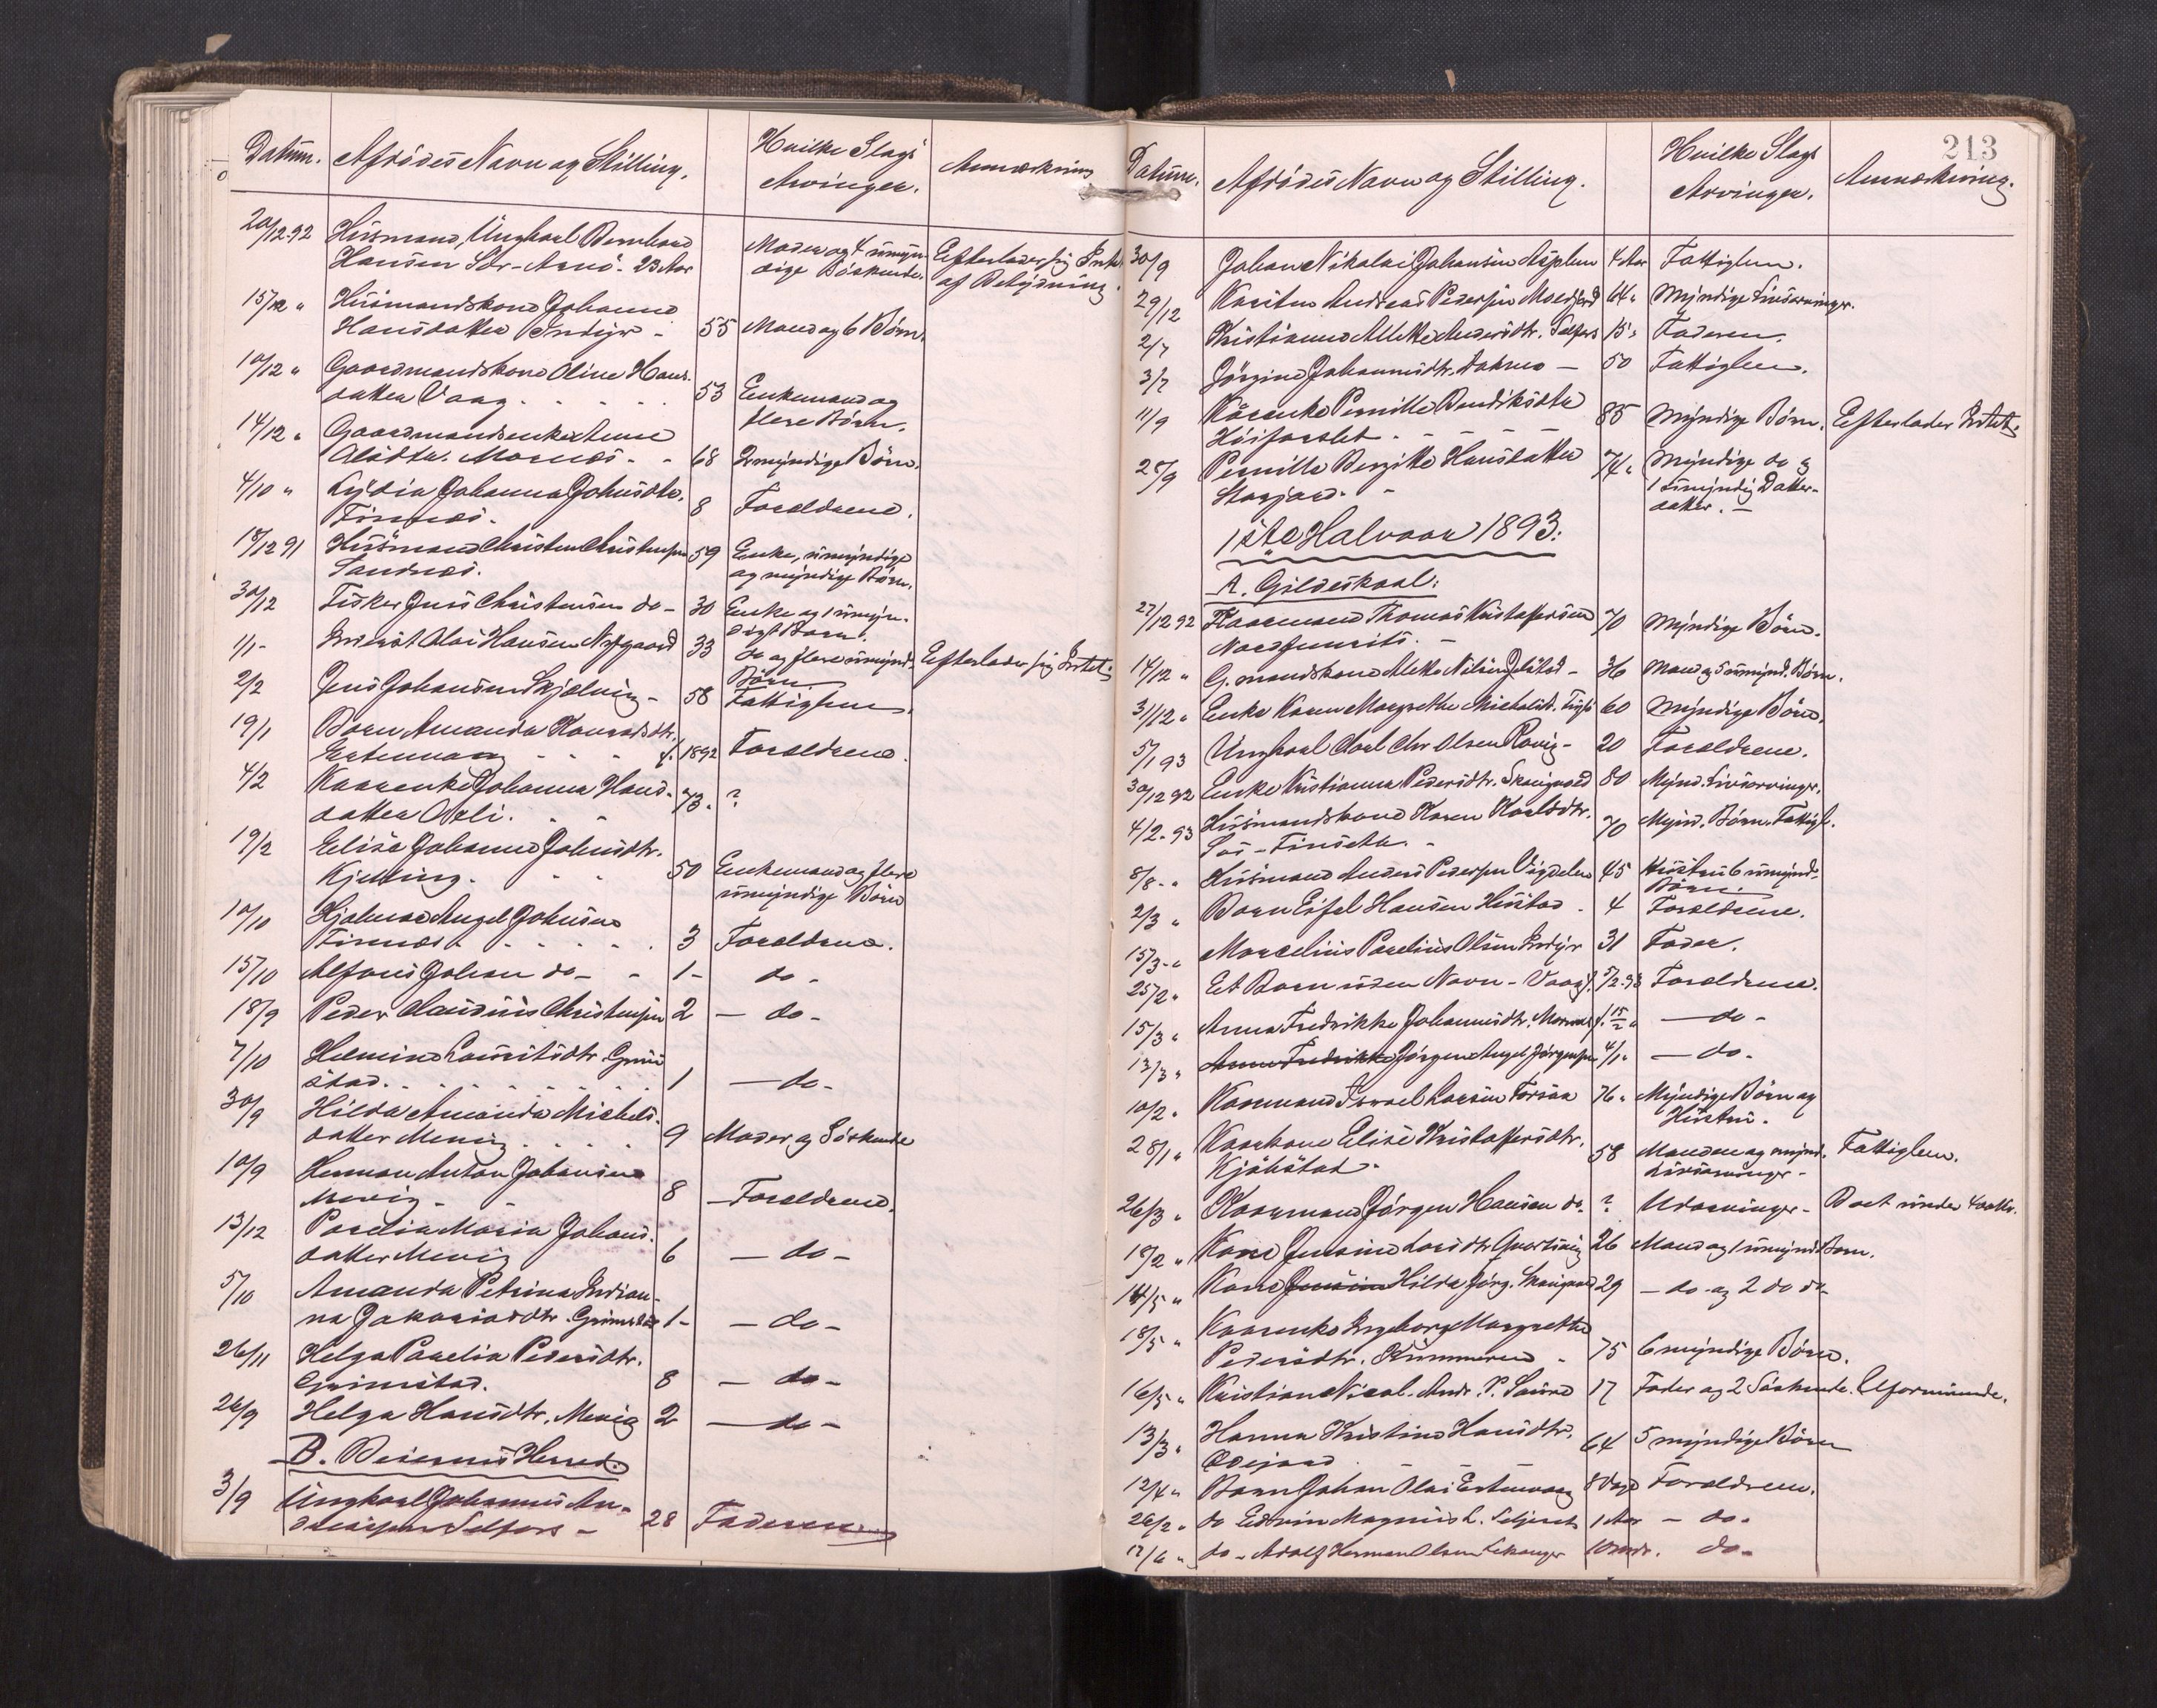 Datum. Afdødes Navn og Stilling. Hvilke Slags Arvinger. Anmærkning
20/12 92 Husmand, Ungkarl Bernhard
Hansen Sør-Arnø - 23 Aar Moder og 4 umyn-
dige Søskende. Efterlader sig Intet
af Betydning.
15/12 " Husmandskone Johanna
Hansdatter Inndyr - 55 Mand og 6 Børn.
10/12 " Gaardmandskone Oline Hans-
datter Vaag. 53 Enkemand og
flere Børn.
14/12 " Gaardmandsenke Anne
Olsdtr. Mornes - 68 2 myndige Børn.
4/10 " Lydia Johanna Johnsdtr.
Finnes. 8 Forældrene.
18/12 91 Husmand Christen Christensen
Sandnes. 59 Enke, umyndige
og myndige Børn.
30/12 Fisker Jens Christensen do - 30 Enke og 1 umyn-
digt Barn.
1/1 - Inderst Olai Hansen Nygaard 33 do og flere umynd.
Børn Efterlader sig Intet.
2/2 Jens Johansen Skjelvig - 58 Fattiglem.
19/1 Barn Amanda Konradsdtr.
Estenvaag f. 1892 Forældrene.
4/2 Kaarenke Johanna Hans-
datter Oeli. 73. ?
19/2 Elise Johanna Johnsdtr.
Kjelling. 50 Enkemand og flere
umyndige Børn
10/10 Hjalmar Angel Johnsen
Finnes 3 Forældrene.
15/10 Alfons Johan do - 1 - do -
18/9 Peder Claudius Christensen 2 - do -
7/10 Helmine Lauritsdtr. Grim-
stad. 1 - do -
30/9 Hilda Amanda Michels-
datter Mevig 9 Moder og Søskende
10/9 Herman Anton Johansen
Mevig - 8 - Forældrene.
13/12 Parelia Maria Johans-
datter Mevig 6 - do -
5/10 Amanda Petrina Indian-
na Jakariasdtr. Grimstad 1 - - do -
26/11 Helga Parelia Pedersdtr.
Grimstad. 8 - do -
26/9 Helga Hansdtr. Mevig 2 - do -
B. Beierens Herred.
3/9 Ungkarl Johannes An-
dreassen Selfors - 28 Faderen
213
Datum. Afdødes Navn og Stilling. Hvilke Slags Arvinger. Anmærkning.
30/9 Johan Nikolai Johansen Asplun 4 Aar Fattiglem.
29/12 Karsten Andreas Pedersen Moldjord 64 " Myndige Livsarvinger.
2/7 Kristianna Aletta Andersdtr. Selfors 15 " Faderen.
3/7 Jørgine Johannesdtr. - 50 Fattiglem.
11/9 Kaarenke Pernille Bendiksdtr
Høiforslet. 85 Myndige Børn. Efterlader Intet.
25/9 Pernille Bergitte Hansdatter
Storjord. - 74 " Myndige do og
1 umyndig Datter-
datter. -
1ste Halvaar 1893.
A. Gildeskaal.
27/12 92 Kaarmand Thomas Kristoffersen
Nordfuureits. - 70 Myndige Børn.
14/12 " G. mandskone Aletta Nilsen Jelstad - 36 Mand og 5 umynd. Børn.
31/12 " Enke Karen Margrethe Michelsd. 60 Myndige Børn.
5/1 93 Ungkarl Carl Chr Olsen - 20 Forældrene.
30/12 92 Enke Kristianna Pedersdtr. Skaugvold 80 Mynd. Livsarvinger.
4/2 - 93 Husmandskone Karen Karlsdtr.
Sør - Finsetn. - 70 Mynd. Børn. Fattigl.
8/3 - " Husmand Anders Pedersen Vigdalen 45 Hustru 6 umynd.
Børn.
2/3 " Barn Eifel Hansen Hustad - 4 Forældrene.
15/3 - " Marcelius Parelius Olsen Inndyr 31 Fader.
25/2 " Et Barn uden Navn - Vaag f. 5/2 - 93 Forældrene.
15/3 " Anna Fredrikke Johannesdtr. Mornes f. 15/2 " - do -
13/3 " Anna Fredrikke Jørgen Angel Jørgensen 4/1 " - do -
10/2 " Kaarmand Israel Larsen Forsaa 76 " Myndige Børn og
Hustru.
28/1 " Kaarkone Elise Kristoffersdtr.
Kjøbstad - 58 Manden og mynd.
Livsarvinger - Fattiglem.
26/3 " Kaarmand Jørgen Hansen do. ? Udarvinger - Boet under
18/2 " Kone Jensine Larsdtr 26 Mand og 1 umynd. Barn.
14/5 " Kone Jensine Hilda Jørg. Skaugvold 29 - do og 2 do do -
18/5 " Kaarenke Ingeborg Margrethe
Pedersdtr. - 75 6 myndige Børn.
16/5 " Kristian Nicol. Andr. P. Sund 17 Fader og 2 Søskende. Uformuende.
13/3 " Hanna Kristine Hansdtr.
64 5 myndige Børn
12/4 " Barn Johan Olai Estenvaag 8 Dage Forældrene.
26/2 " do Edvin Magnus L. Seljeseth 1 Aar - do -
12/6 " do - Adolf Herman Olsen Lekanger 10 Mdr. do -